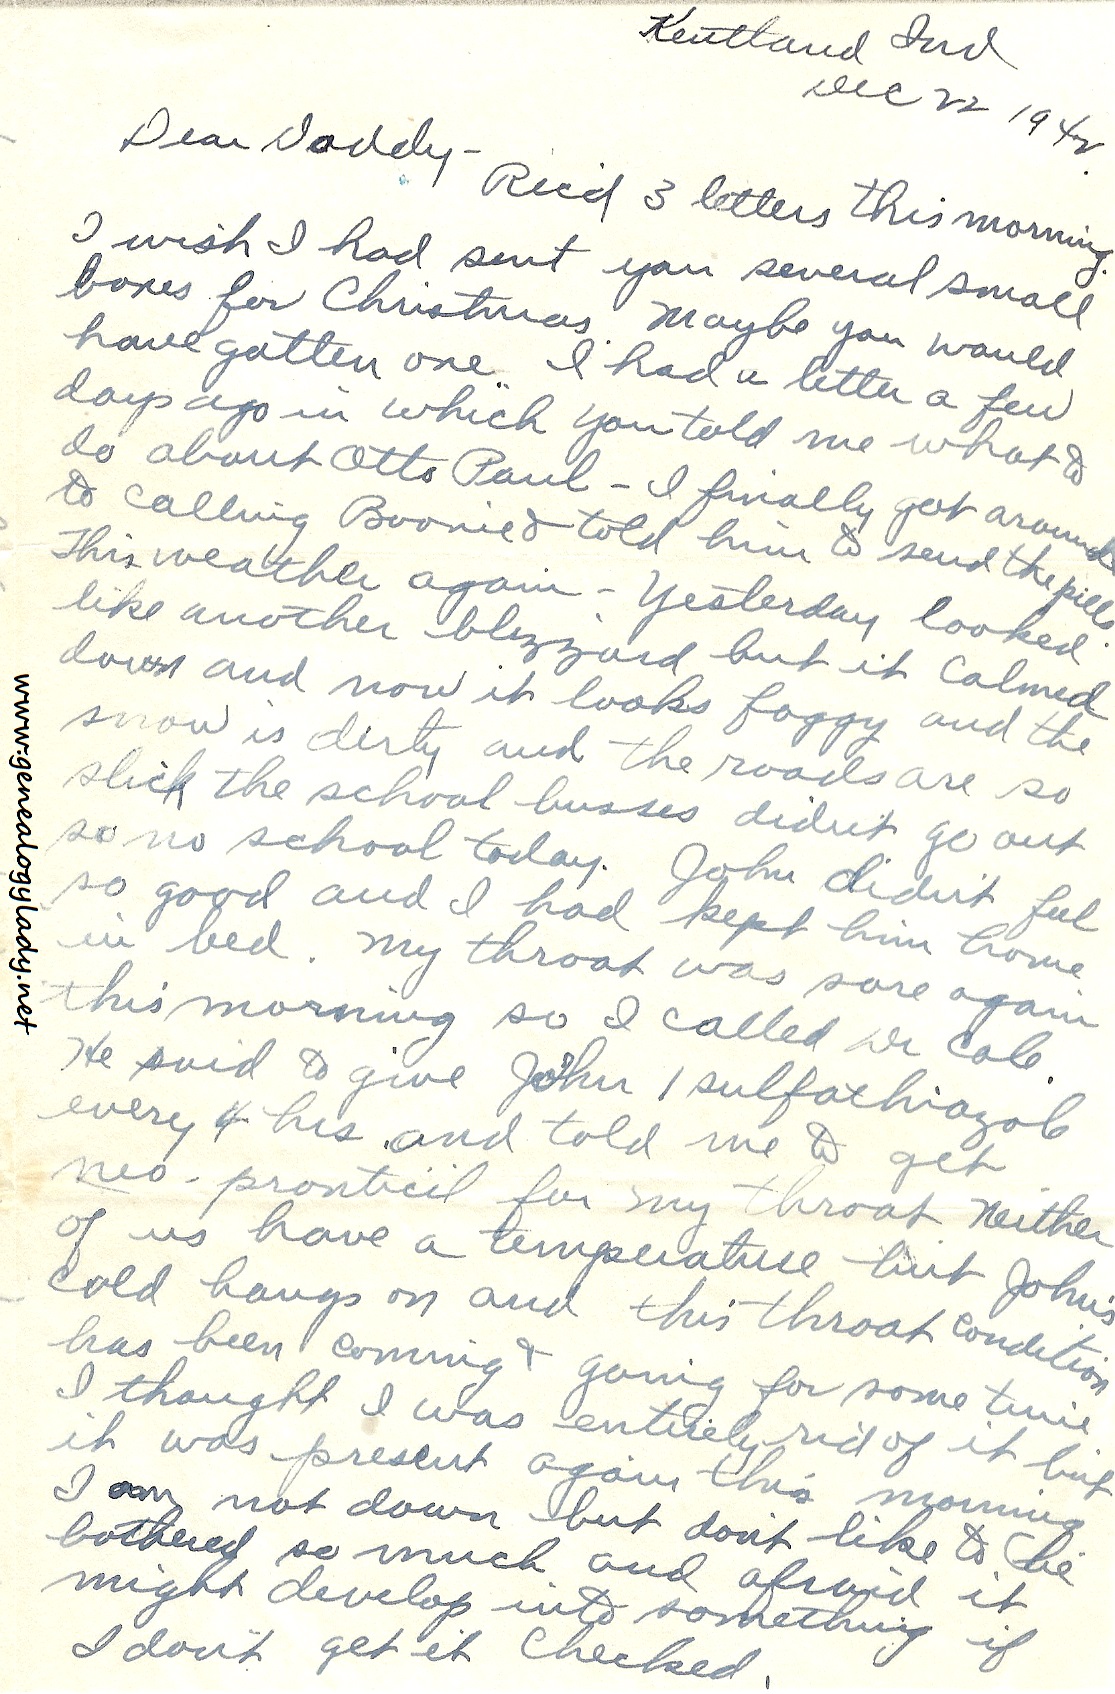 Kentland Ind
Dec 22 1942
Dear Daddy -
Rec'd 3 letters this morning.
I wish I had sent you several small
boxes for Christmas. Maybe you would
have gotten one. I had a letter a few
days ago in which you told me what to
do about Otto Paul - I finally got around
to calling Boonie & told him to send the pills.
This weather again - Yesterday looked
like another blizzard but it calmed
down and now it looks foggy and the
snow is dirty and the roads are so
slick the school busses didn't go out
so no school today. John didn't feel
so good and I had kept him home
in bed. My throat was sore again
this morning so I called Dr Cole.
He said to give John 1 sulfathiazole
every 4 hrs. and told me to get
neo-pronticil for my throat Neither
of us have a temperature but John's
cold hangs on and this throat condition
has been coming & going for some time
I thought I was entirely rid of it but
it was present again this morning
I am not down but don't like to be
bothered so much and afraid it
might develop into something if
I don't get it checked.
www.genealogylady.net